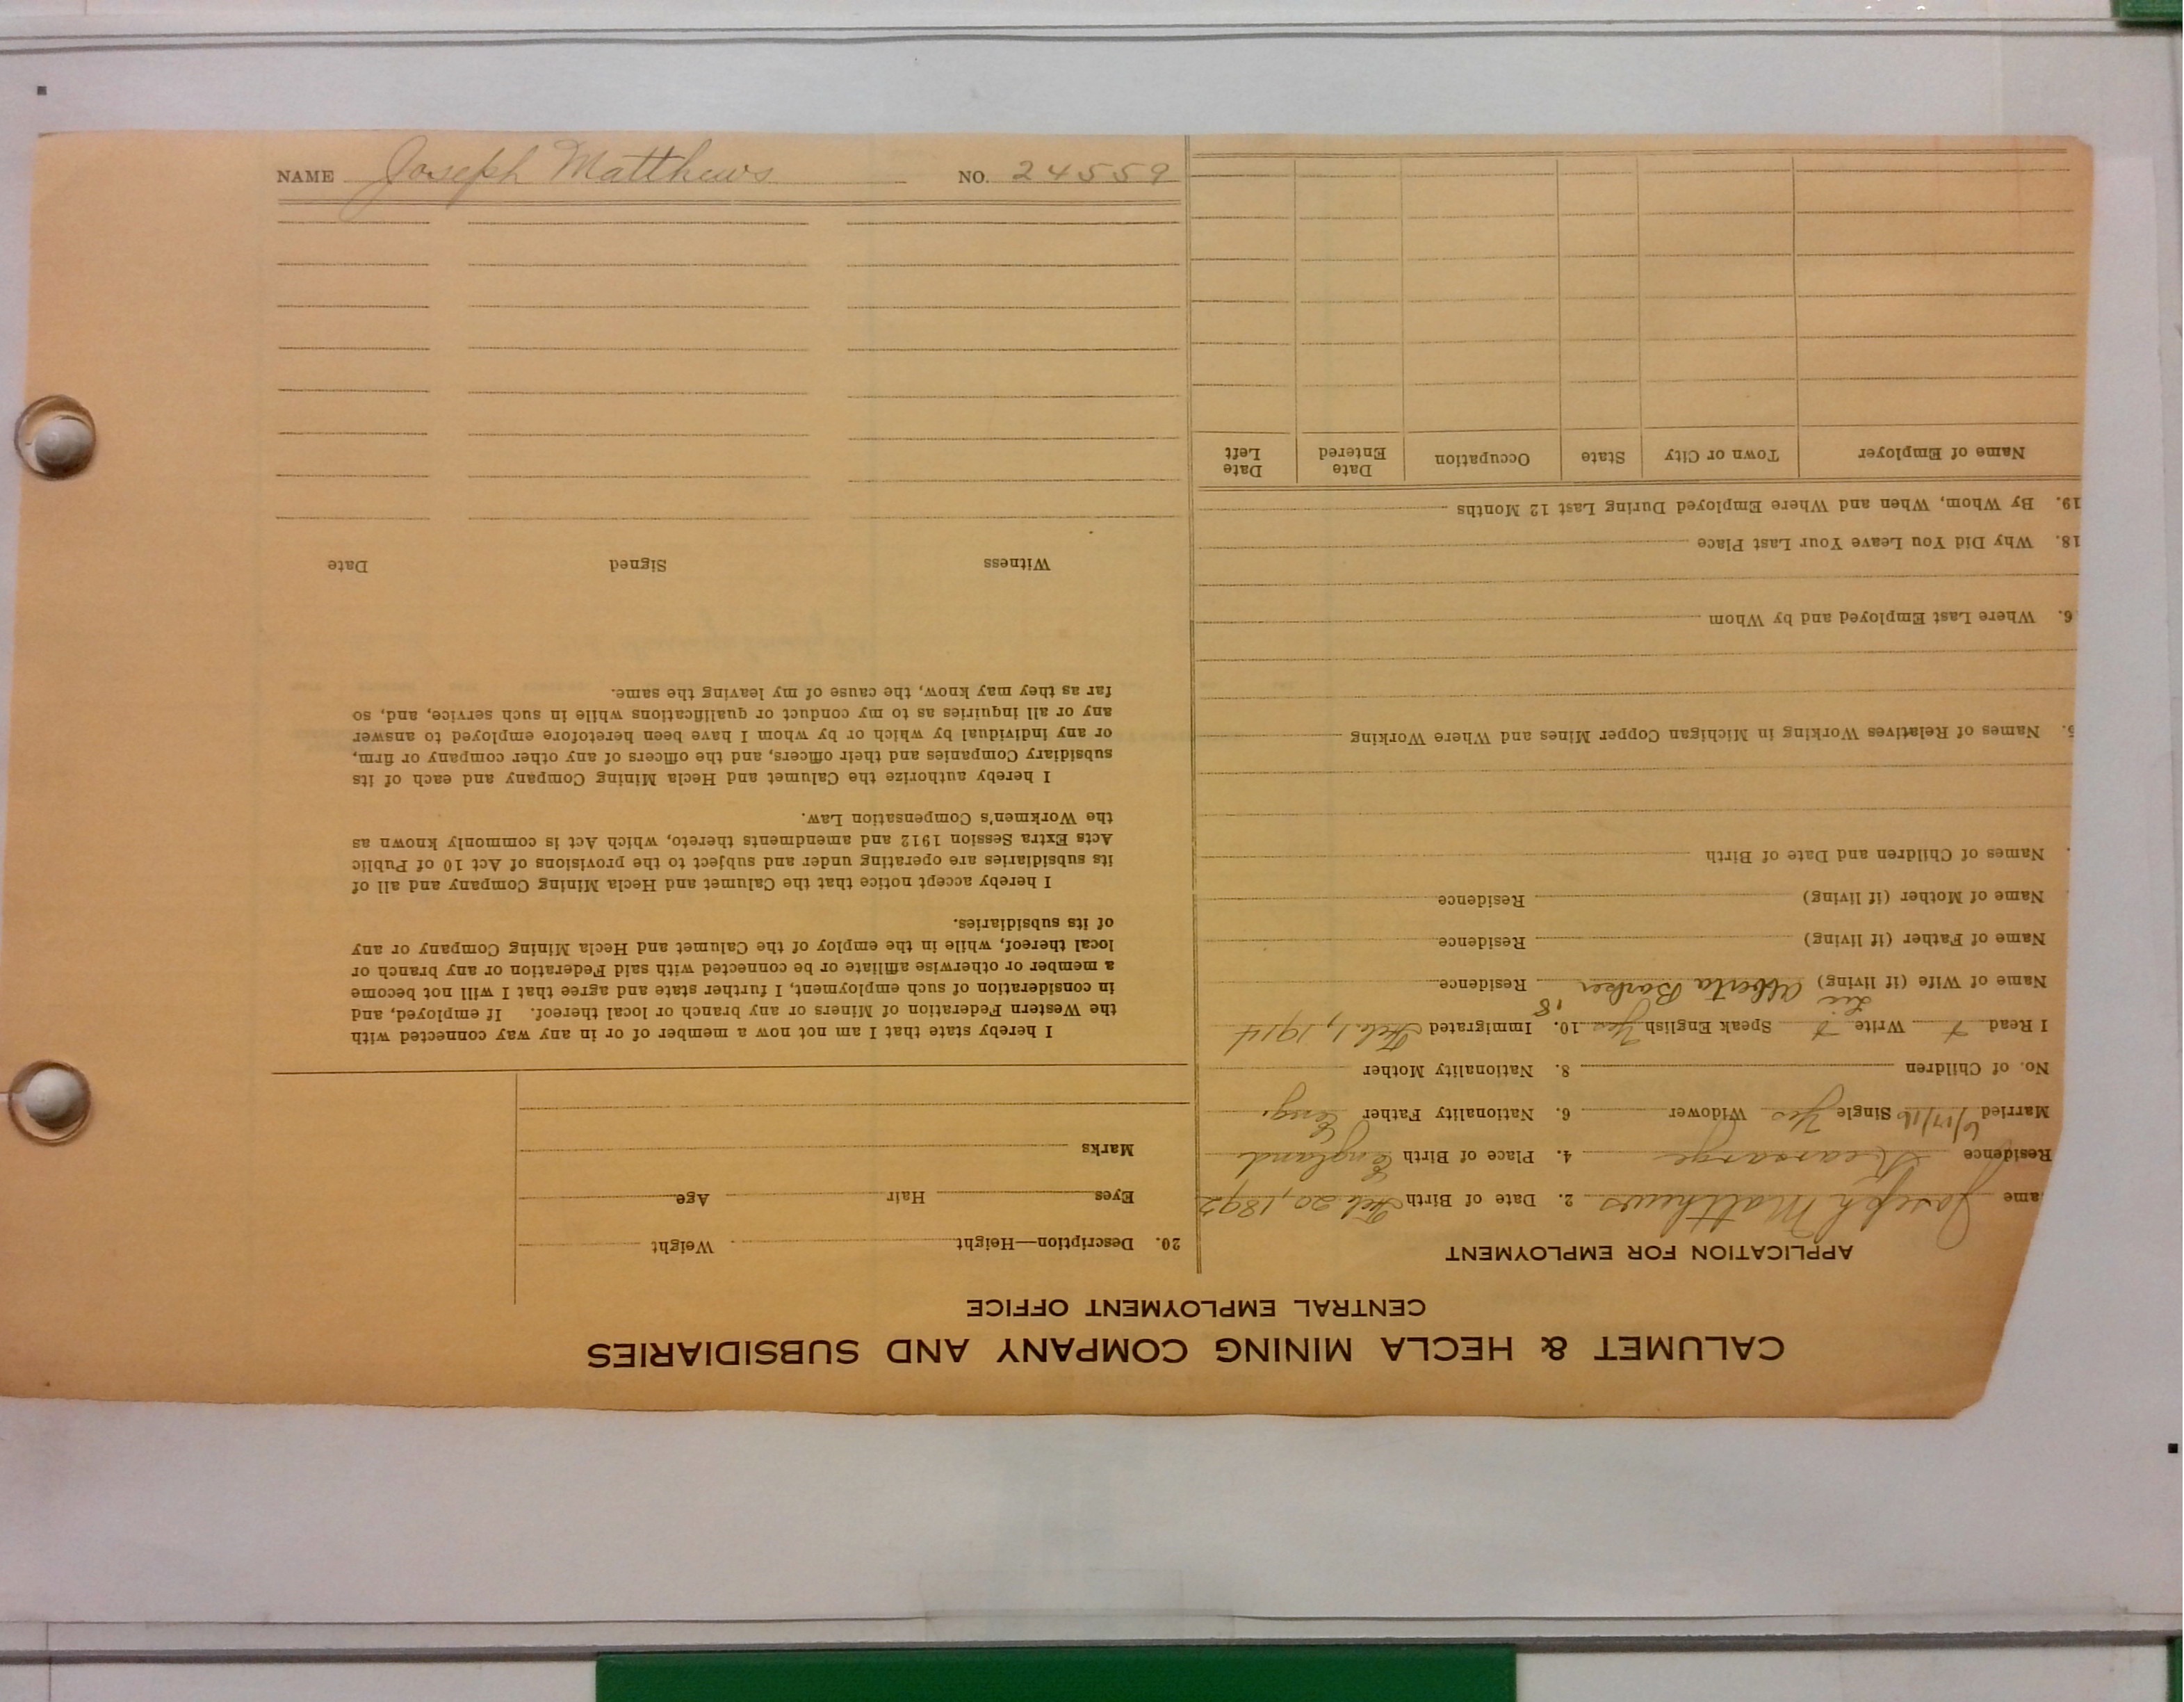 NAME Joseph Matthews NO. 24559
CALUMET & HECLA MINING COMPANY AND SUBSIDIARIES
CENTRAL EMPLOYMENT OFFICE
APPLICATION FOR EMPLOYMENT
ame Joseph Matthews 2. Date of Birth Feb 20, 1892
Residence Kearsarge 4. Place of Birth England
Married 6/17/16 Single Yes Widower 6. Nationality Father Eng.
No. of Children 8. Nationality Mother
I Read Write Speak English Yes 10. Immigrated Feb 1, 1914
Name of Wife (if living) Alberta Barker Residence
Name of Father (if living) Residence
Name of Mother (if living) Residence
Names of Children and Date of Birth
5. Names of Relatives Working in Michigan Copper Mines and Where Working
6. Where Last Employed and by Whom
18. Why Did You Leave Your Last Place
19. By Whom, When and Where Employed During Last 12 Months
Name of Employer Town or City State Occupation Date Entered Date Left
20. Description—Height Weight
Eyes Hair Age
Marks
I hereby state that I am not now a member of or in any way connected with
the Western Federation of Miners or any branch or local thereof. If employed, and
in consideration of such employment, I further state and agree that I will not become
a member or otherwise affiliate or be connected with said Federation or any branch or
local thereof, while in the employ of the Calumet and Hecla Mining Company or any
of its subsidiaries.
I hereby accept notice that the Calumet and Hecla Mining Company and all of
its subsidiaries are operating under and subject to the provisions of Act 10 of Public
Acts Extra Session 1912 and amendments thereto, which Act is commonly known as
the Workmen's Compensation Law.
I hereby authorize the Calumet and Hecla Mining Company and each of its
subsidiary Companies and their officers, and the officers of any other company or firm,
or any individual by which or by whom I have been heretofore employed to answer
any or all inquiries as to my conduct or qualifications while in such service, and, so
far as they may know, the cause of my leaving the same.
Witness Signed Date